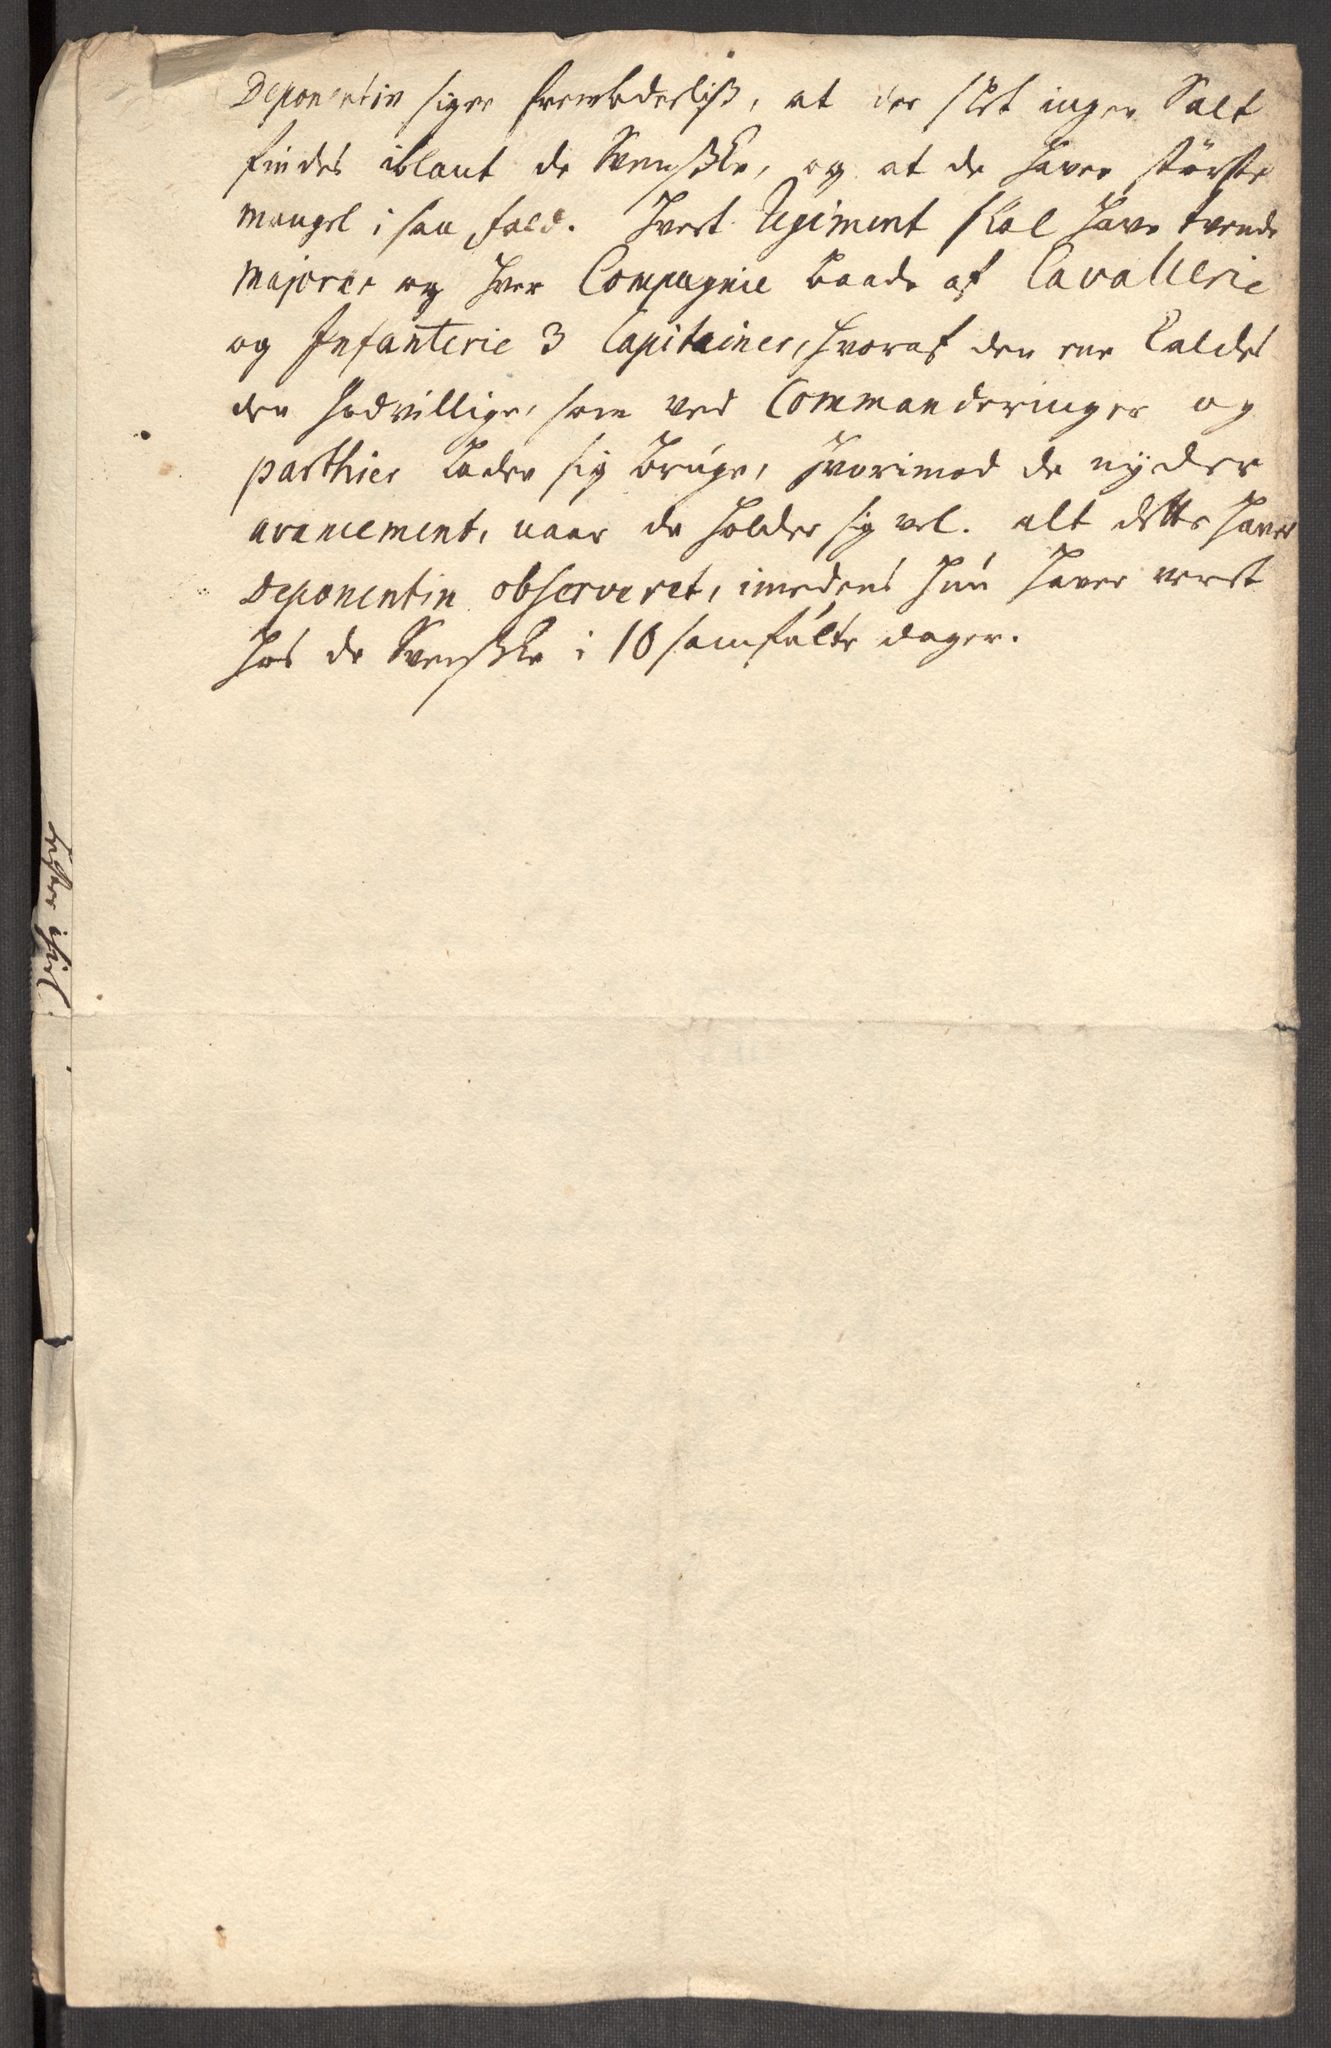 Deponentin siger frembdeeliß, at der slet ingen Salt
findes iblant de Svenßke, og at de haver störste
mangel i saa fald. Hvert Regiment skal have tvende
Majorer og hver Compagnie baade af Cavallerie
og Infanterie 3 Capitainer, hvoraf den ene kaldes
den Godvillige, som ved Commanderinger og
parthier lader sig bruge, hvorimod de nyder
avancement, naar de holder sig vel. alt dette haver
Deponentin observeret, imedens hun haver veret
hos de Svenßke i 10 samfulte dager.